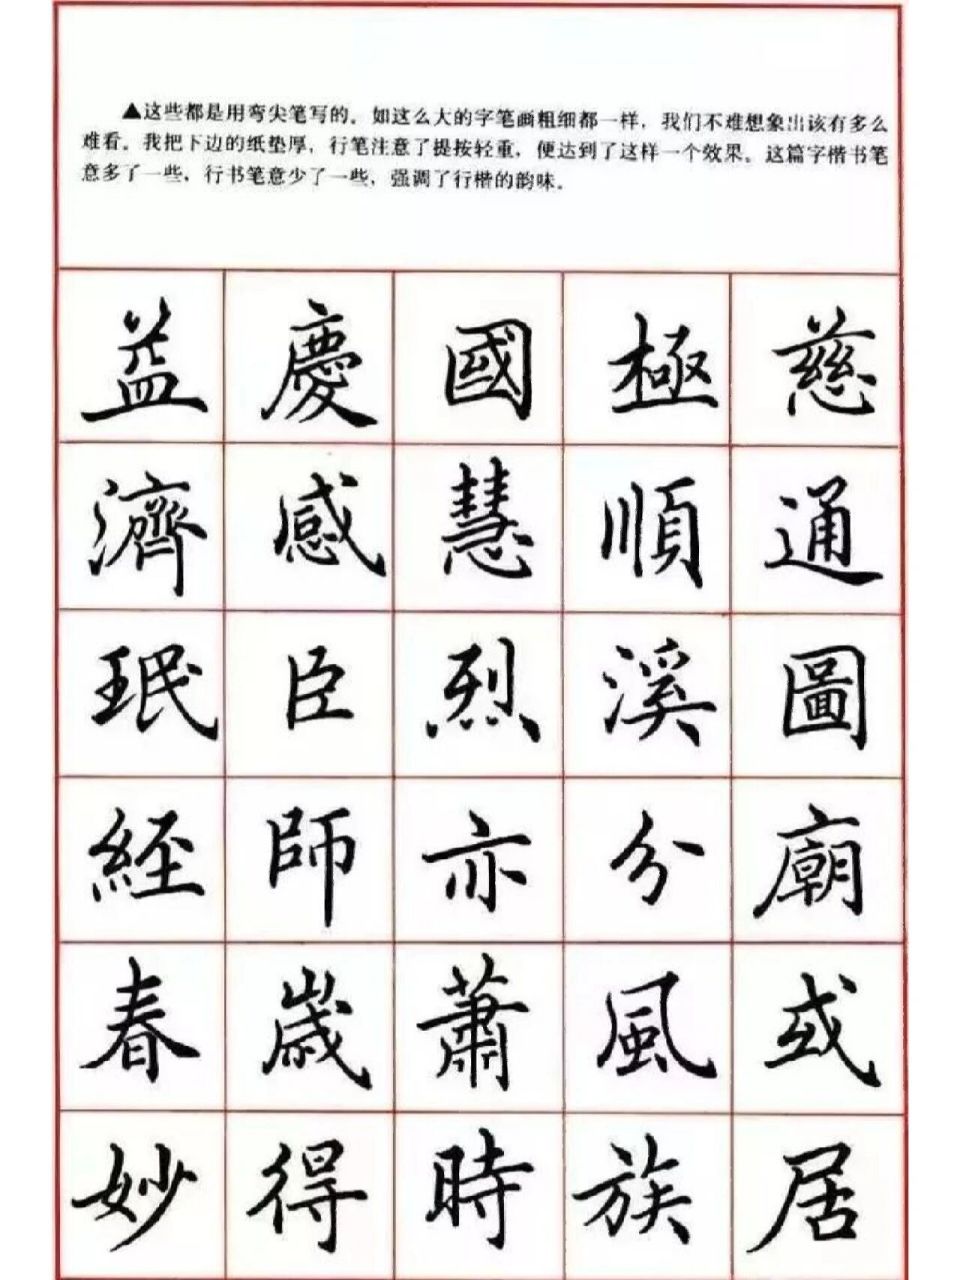 ▲这些都是用弯尖笔写的。如这么大的字笔画粗细都一样，我们不难想象出该有多么
难看。我把下边的纸垫厚，行笔注意了提按轻重，便达到了这样一个效果。这篇字楷书笔
意多了一些，行书笔意少了一些，强调了行楷的韵味。
益慶國極慈
濟感慧順通
珉臣烈溪圖
經師亦分廟
春歲蕭風或
妙得時族居